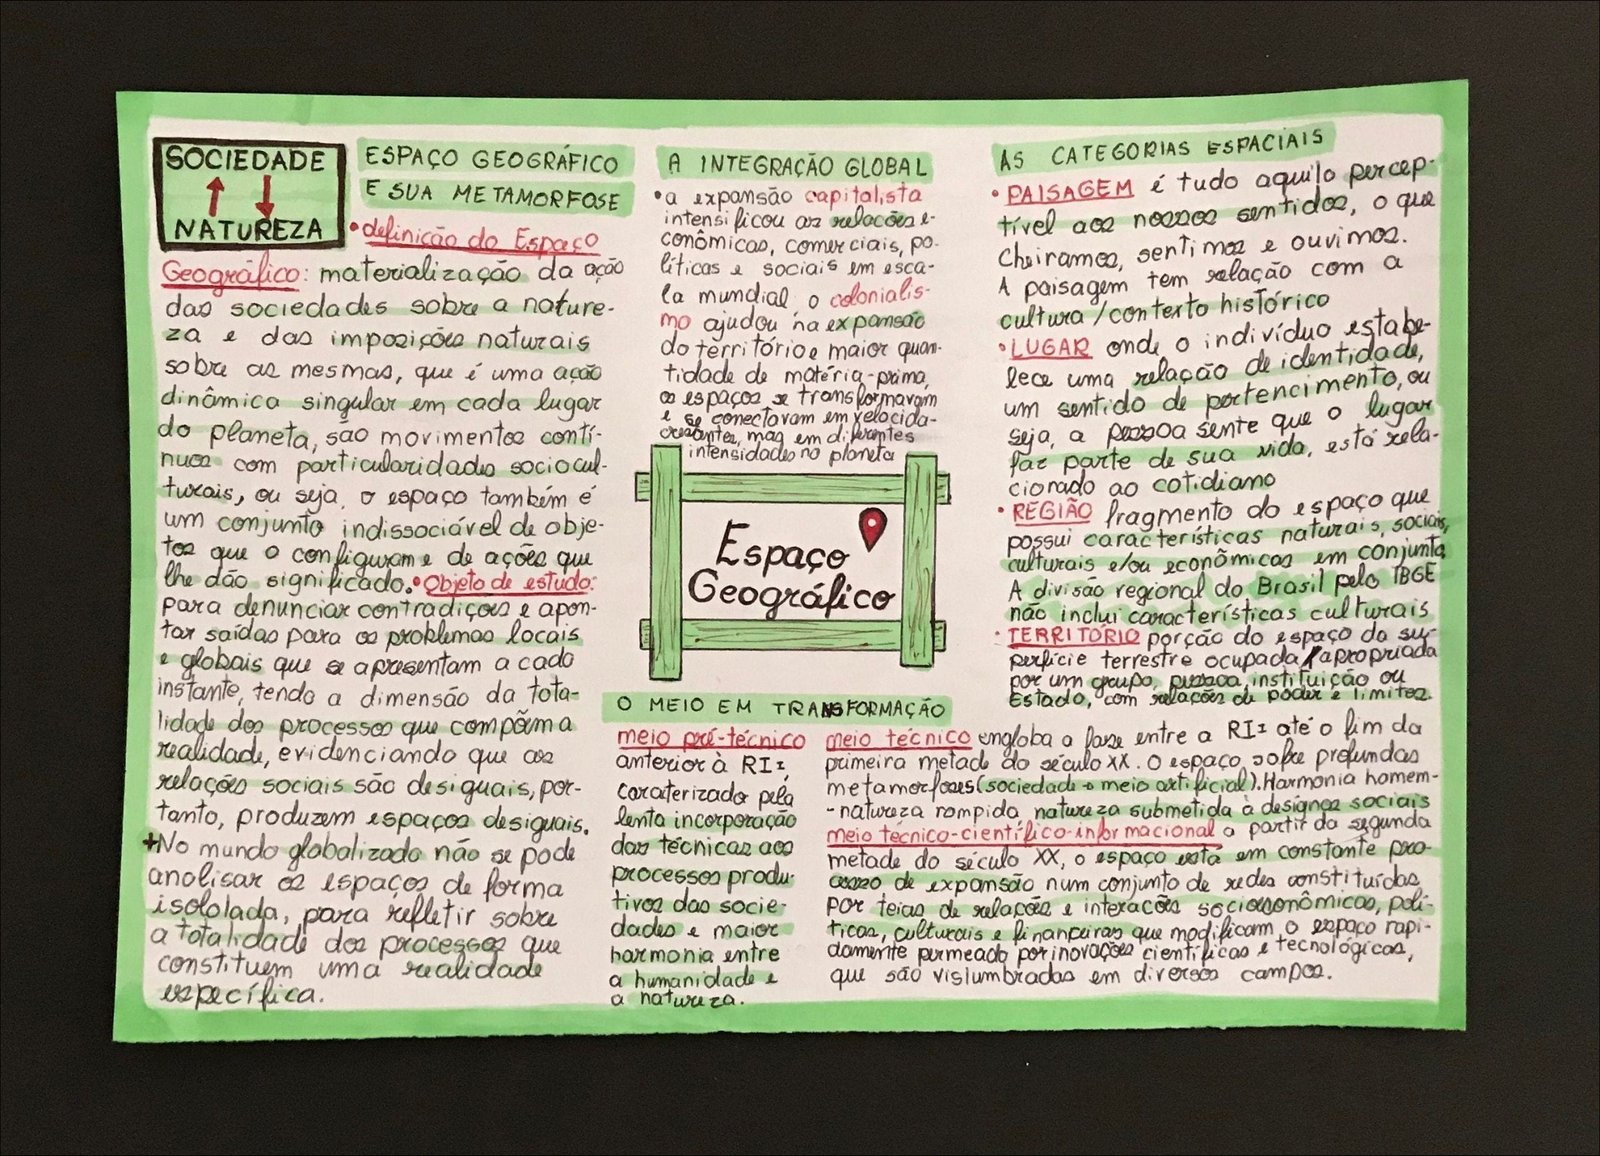 SOCIEDADE
NATUREZA
ESPAÇO GEOGRÁFICO
E SUA METAMORFOSE
•definição do Espaço
Geográfico: materialização da ação
das sociedades sobre a nature-
za e das imposições naturais
sobre as mesmas, que é uma ação
dinâmica singular em cada lugar
do planeta, são movimentos contí-
nuos com particularidades sociocul-
turais, ou seja, o espaço também é
um conjunto indissociável de obje-
tos que o configuram e de ações que
lhe dão significado.•Objeto de estudo:
para denunciar contradições e apon-
tar saídas para os problemas locais
e globais que se apresentam a cada
instante, tendo a dimensão da tota-
lidade dos processos que compõm a
realidade, evidenciando que as
relações sociais são desiguais, por-
tanto, produzem espaços desiguais.
+No mundo globalizado não se pode
analisar os espaços de forma
isololada, para refletir sobre
a totalidade dos processos que
constituem uma realidade
específica.
A INTEGRAÇÃO GLOBAL
•a expansão capitalista
intensificou as relações e-
conômicas, comerciais, po-
líticas e sociais em esca-
la mundial, o colonialis-
mo ajudou na expansão
do território e maior quan-
tidade de matéria-prima,
os espaços se transformavam
e se conectavam em velocida-
crescentes, mas em diferentes
intensidades no planeta
Espaço
Geográfico
O MEIO EM TRANSFORMAÇÃO
meio pré-técnico
anterior à RI:
caraterizado pela
lenta incorporação
das técnicas aos
processos produ-
tivos das socie-
dades e maior
harmonia entre
a humanidade e
a natureza.
meio técnico engloba a fase entre a RI: até o fim da
primeira metade do século XX. O espaço sofre profundas
metamorfoses (sociedade → meio artificial). Harmonia homem-
-natureza rompida, natureza submetida à designos sociais
meio técnico-científico-informacional a partir da segunda
metade do século XX, o espaço está em constante pro-
cesso de expansão num conjunto de redes constituídas
por teias de relações e interacões socioeconômicas, polí-
ticas, culturais e financeiras que modificam o espaço rapi-
damente permeado por inovações científicas e tecnológicas,
que são vislumbradas em diversos campos.
AS CATEGORIAS ESPACIAIS
•PAISAGEM é tudo aquilo percep-
tível aos nossos sentidos, o que
Cheiramos, sentimos e ouvimos.
A paisagem tem relação com a
cultura/contexto histórico
•LUGAR onde o indivíduo estabe-
lece uma relação de identidade,
um sentido de pertencimento, ou
seja, a pessoa sente que o lugar
faz parte de sua vida, está rela-
cionado ao cotidiano
•REGIÃO fragmento do espaço que
possui características naturais, sociais,
culturais e/ou econômicas em conjunto
A divisão regional do Brasil pelo IBGE
não inclui características culturais
•TERRITÓRIO porção do espaço da su-
perfície terrestre ocupada/apropriada
por um grupo, pessoa, instituição ou
Estado, com relações de poder e limites.